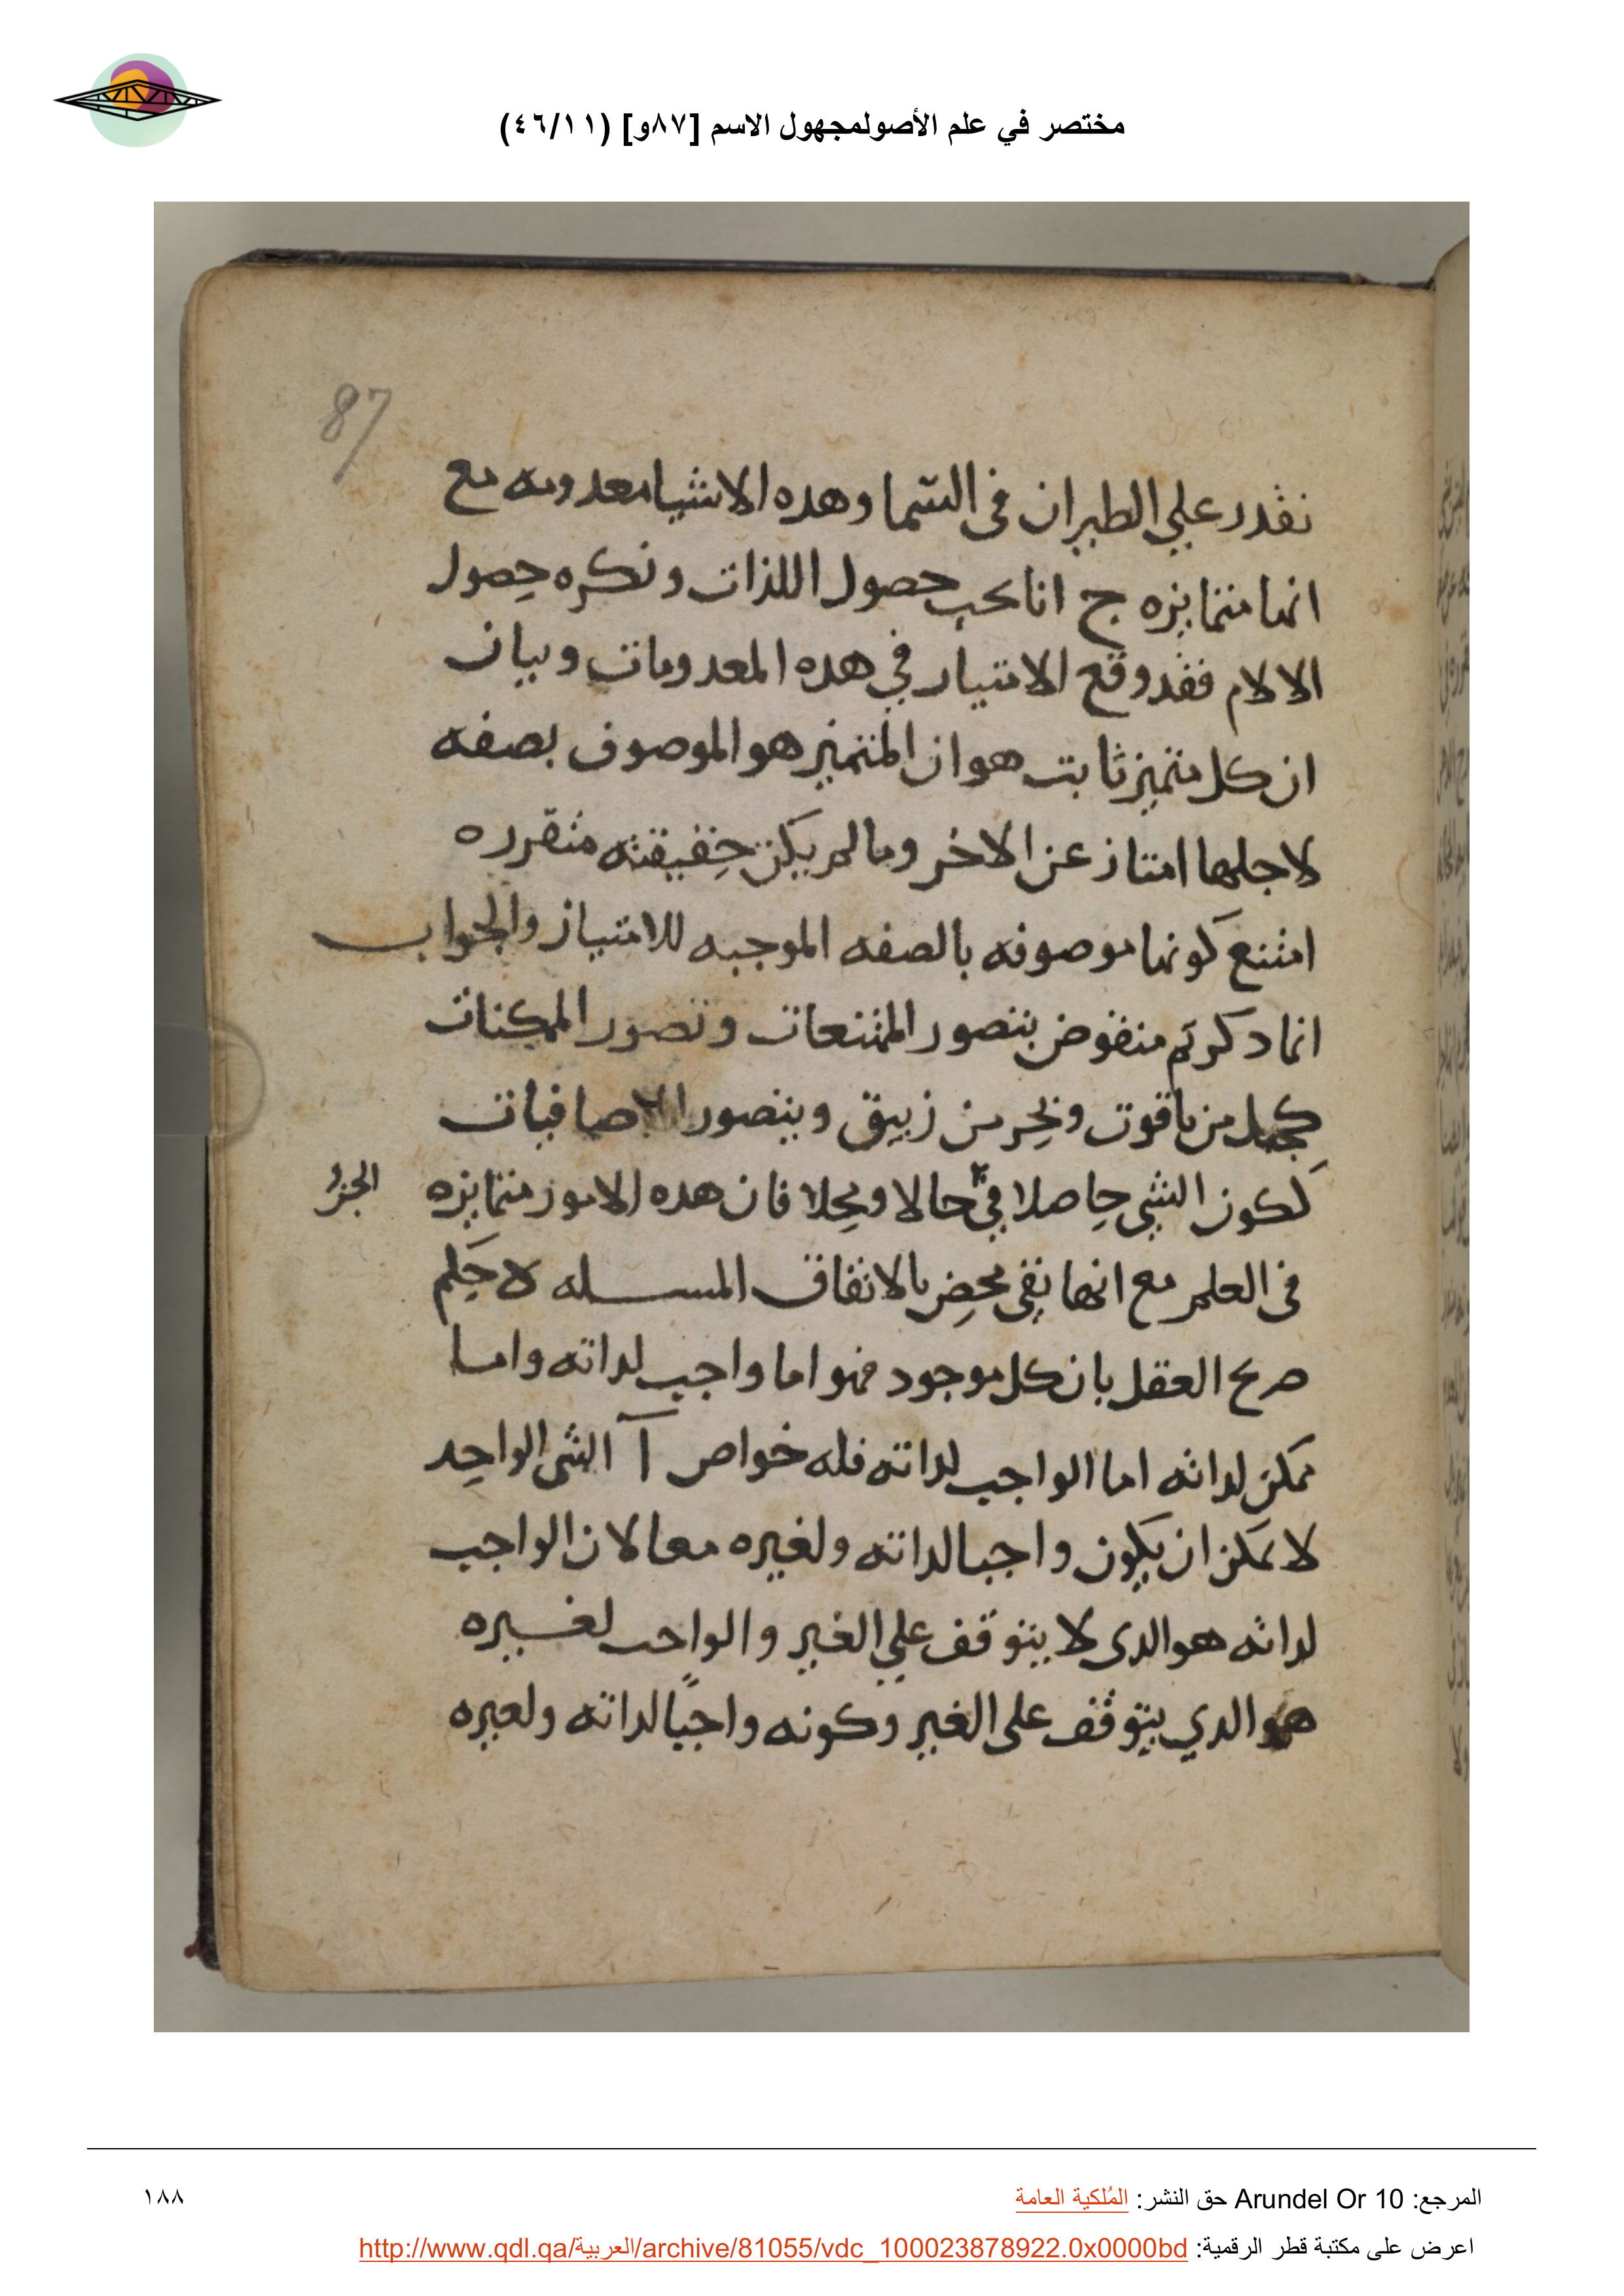 مختصر في علم الأصولمجهول الاسم [٨٧و] (٤٦/١١)
87
نقدر علي الطيران في السما وهده الاشيا معدومه مع
انها متمايزه ج انا نحب حصول اللذات ونكره حصول
الالام فقد وقع الامتيار في هده المعدومات وبيان
ان كل متميز ثابت هو ان المتميز هو الموصوف بصفه
لاجلها امتاز عن الاخر وما لم يكن حقيقته متقرره
امتنع كونها موصوفه بالصفه الموجبه للامتياز والجواب
انما دكرتم منقوض بتصور الممتنعات وتصور الممكنات
كجبل من ياقوت وبحر من زيبق وبتصور الاضافيات
لكون الشي حاصلا في حالا ومحلا فان هده الامور متمايزه
الجز
في العلم مع انها نفي محض بالاتفاق المسله لا حكم
صريح العقل بان كل موجود فهو اما واجب لداته واما
ممكن لداته اما الواجب لداته فله خواص آ الشي الواحد
لا يمكن ان يكون واجبا لداته ولغيره معا لان الواجب
لداته هو الدي لا يتوقف علي الغير والواجب لغيره
هو الدي يتوقف علي الغير وكونه واجبًا لداته ولغيره
المرجع: Arundel Or 10 حق النشر: المُلكية العامة
١٨٨
اعرض على مكتبة قطر الرقمية: http://www.qdl.qa/العربية/archive/81055/vdc_100023878922.0x0000bd